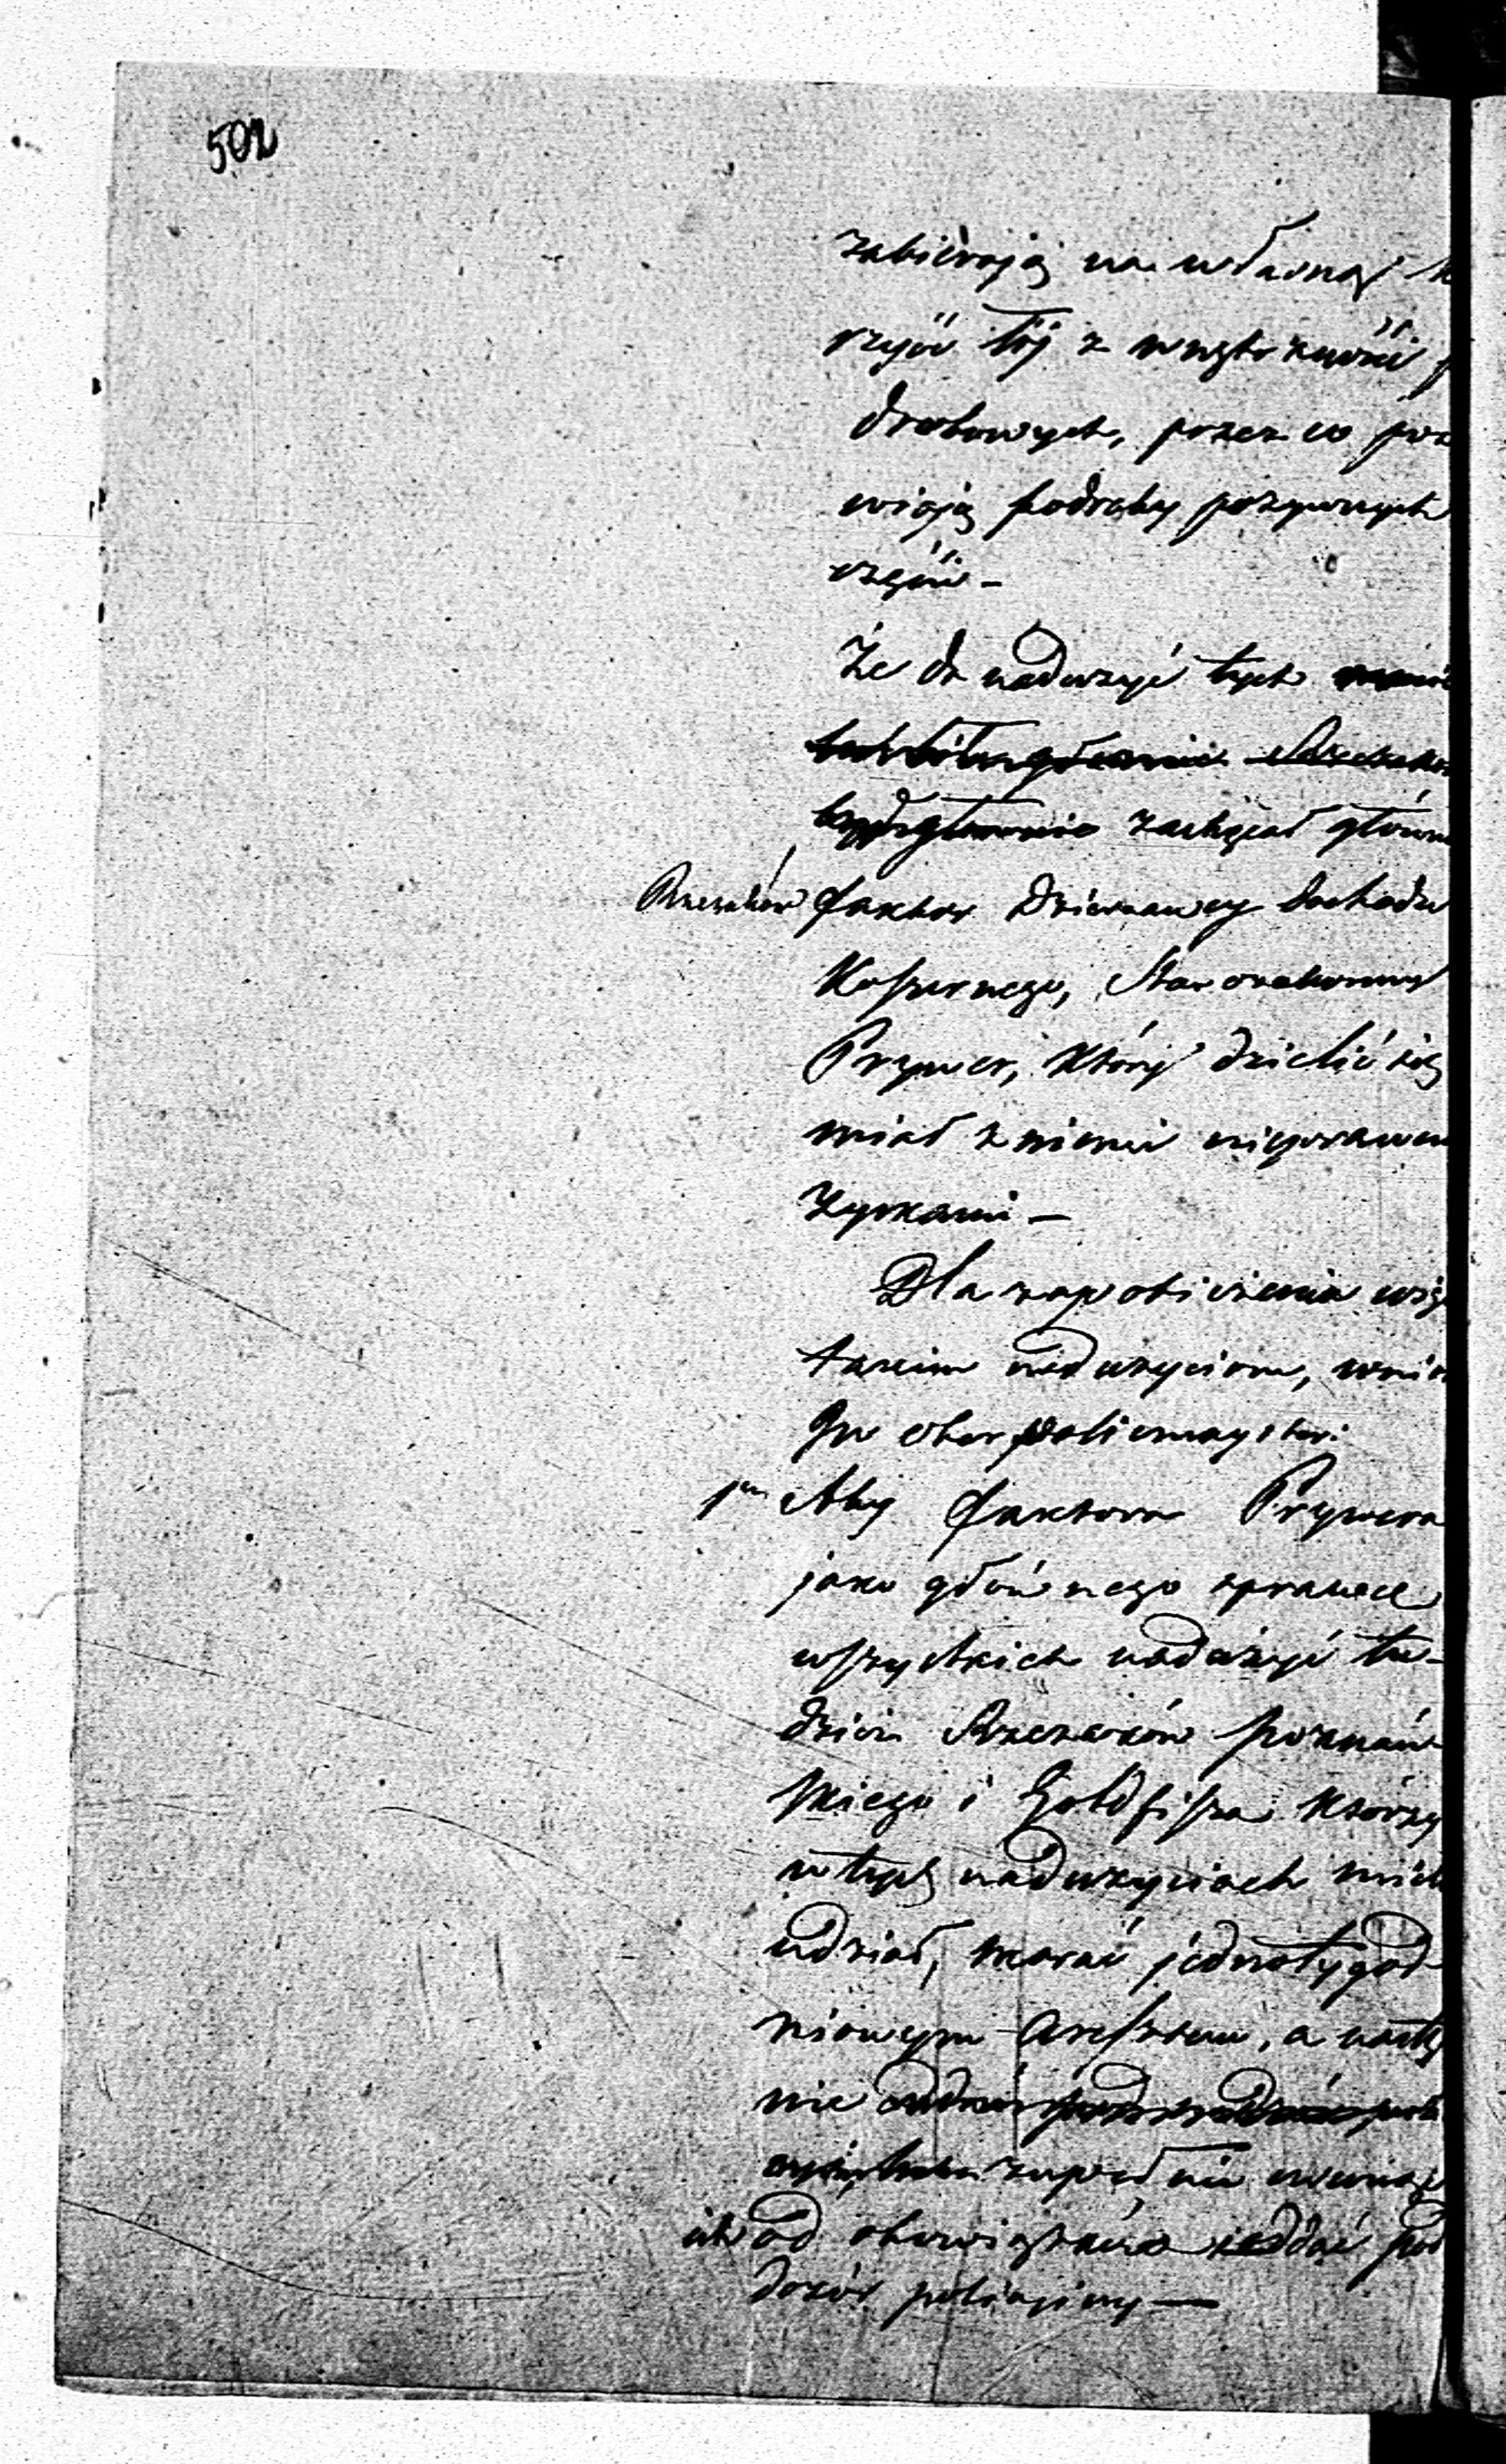 502
zabierają na własną
rzyść tej z wnętrzności
drobowych, przez co poz
wiają podroby pożywnych
części –
Że do nadużyć tych
zachęcał główn
Rzezaków faktor Dzierżawcy dochodu
Koszernego, Starozakonny
Prywer, który dzielić się
miał z niemi niepraw
zyskami —
Dla zapobieżenia więc
takim nadużyciom, wnio
JW Oberpolicmajster:
1o Aby faktora Prywera
jako głównego sprawcę
wszystkich nadużyć tu-
dzież Rzezaków Poznań
skiego i Goldfisza którzy
w tych nadużyciach mieli
udział, skarać jednotygod-
niowym aresztem, a nastę
nie
zupełnie usunąć
ich od obowiązków i oddać pod
dozór policyjny —